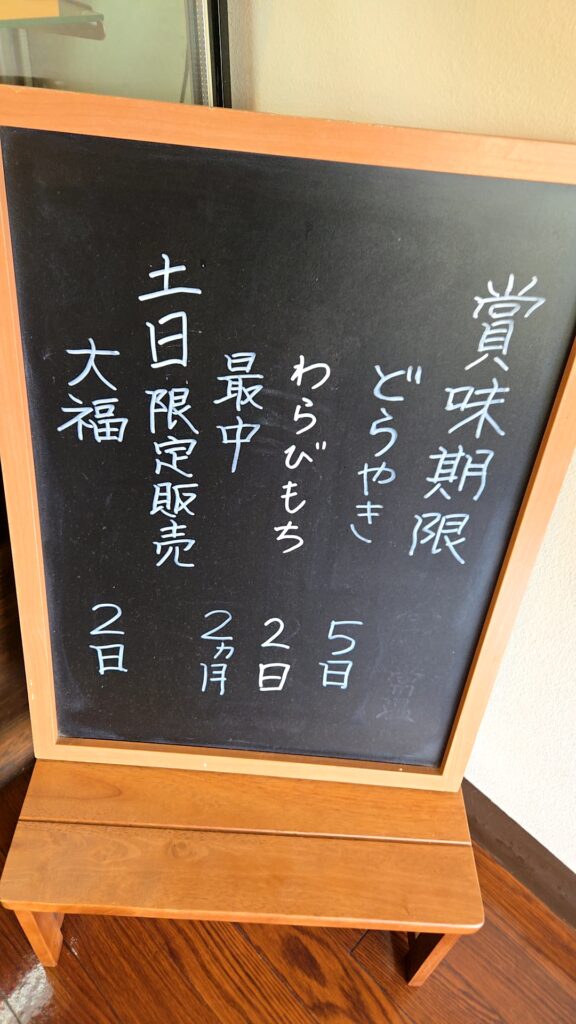 賞味期限
どらやき 5日
わらびもち 2日
最中 2ヵ月
土日限定販売
大福 2日